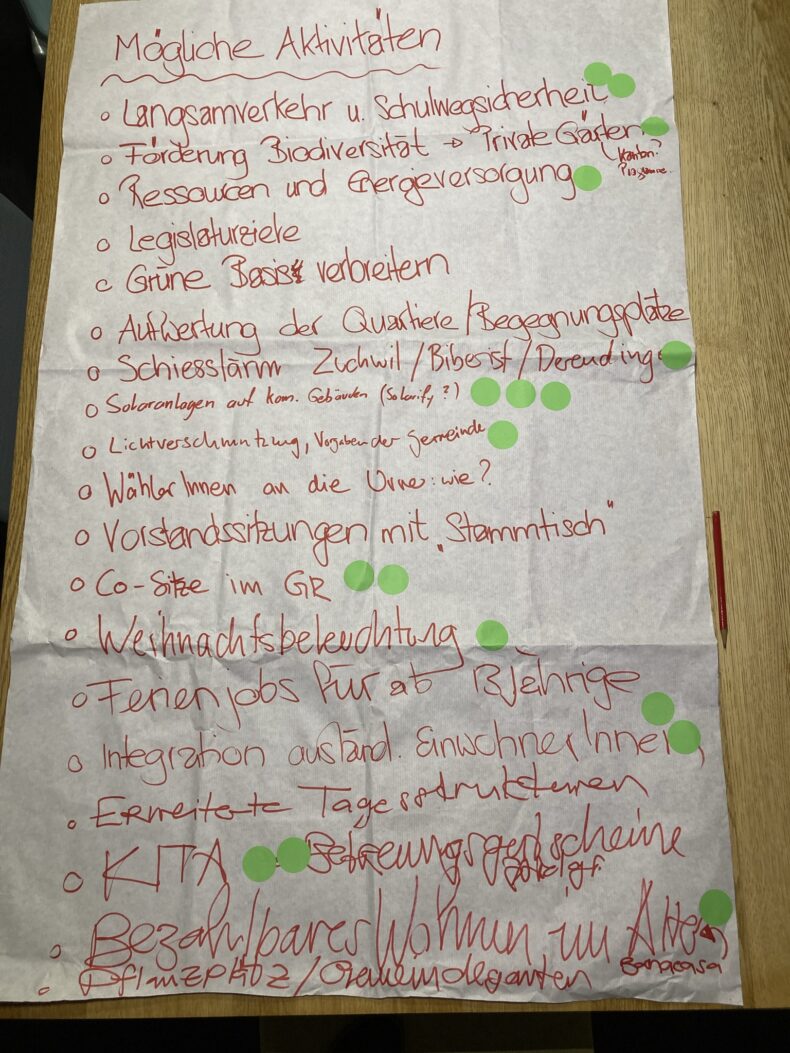 Mögliche Aktivitäten
o Langsamverkehr u. Schulwegsicherheit
o Förderung Biodiversität → Private Gärten
Kanton?
o Ressourcen und Energieversorgung
o Legislaturziele
o Grüne Basis verbreitern
o Aufwertung der Quartiere/Begegnungsplätze
o Schiesslärm Zuchwil/Biberist/Derendingen
o Solaranlagen auf kom. Gebäuden (Solarify?)
o Lichtverschmutzung, Vorgaben der Gemeinde
o WählerInnen an die Urne: wie?
o Vorstandssitzungen mit „Stammtisch"
o Co-Sitze im GR
o Weihnachtsbeleuchtung
o Ferienjobs für ab 13jährige
o Integration ausländ. EinwohnerInnen
o Erweiterte Tagesstrukturen
o KITA Betreuungsgutscheine
o Bezahlbares Wohnen im Alter
Bonacasa
o Pflanzplätz/